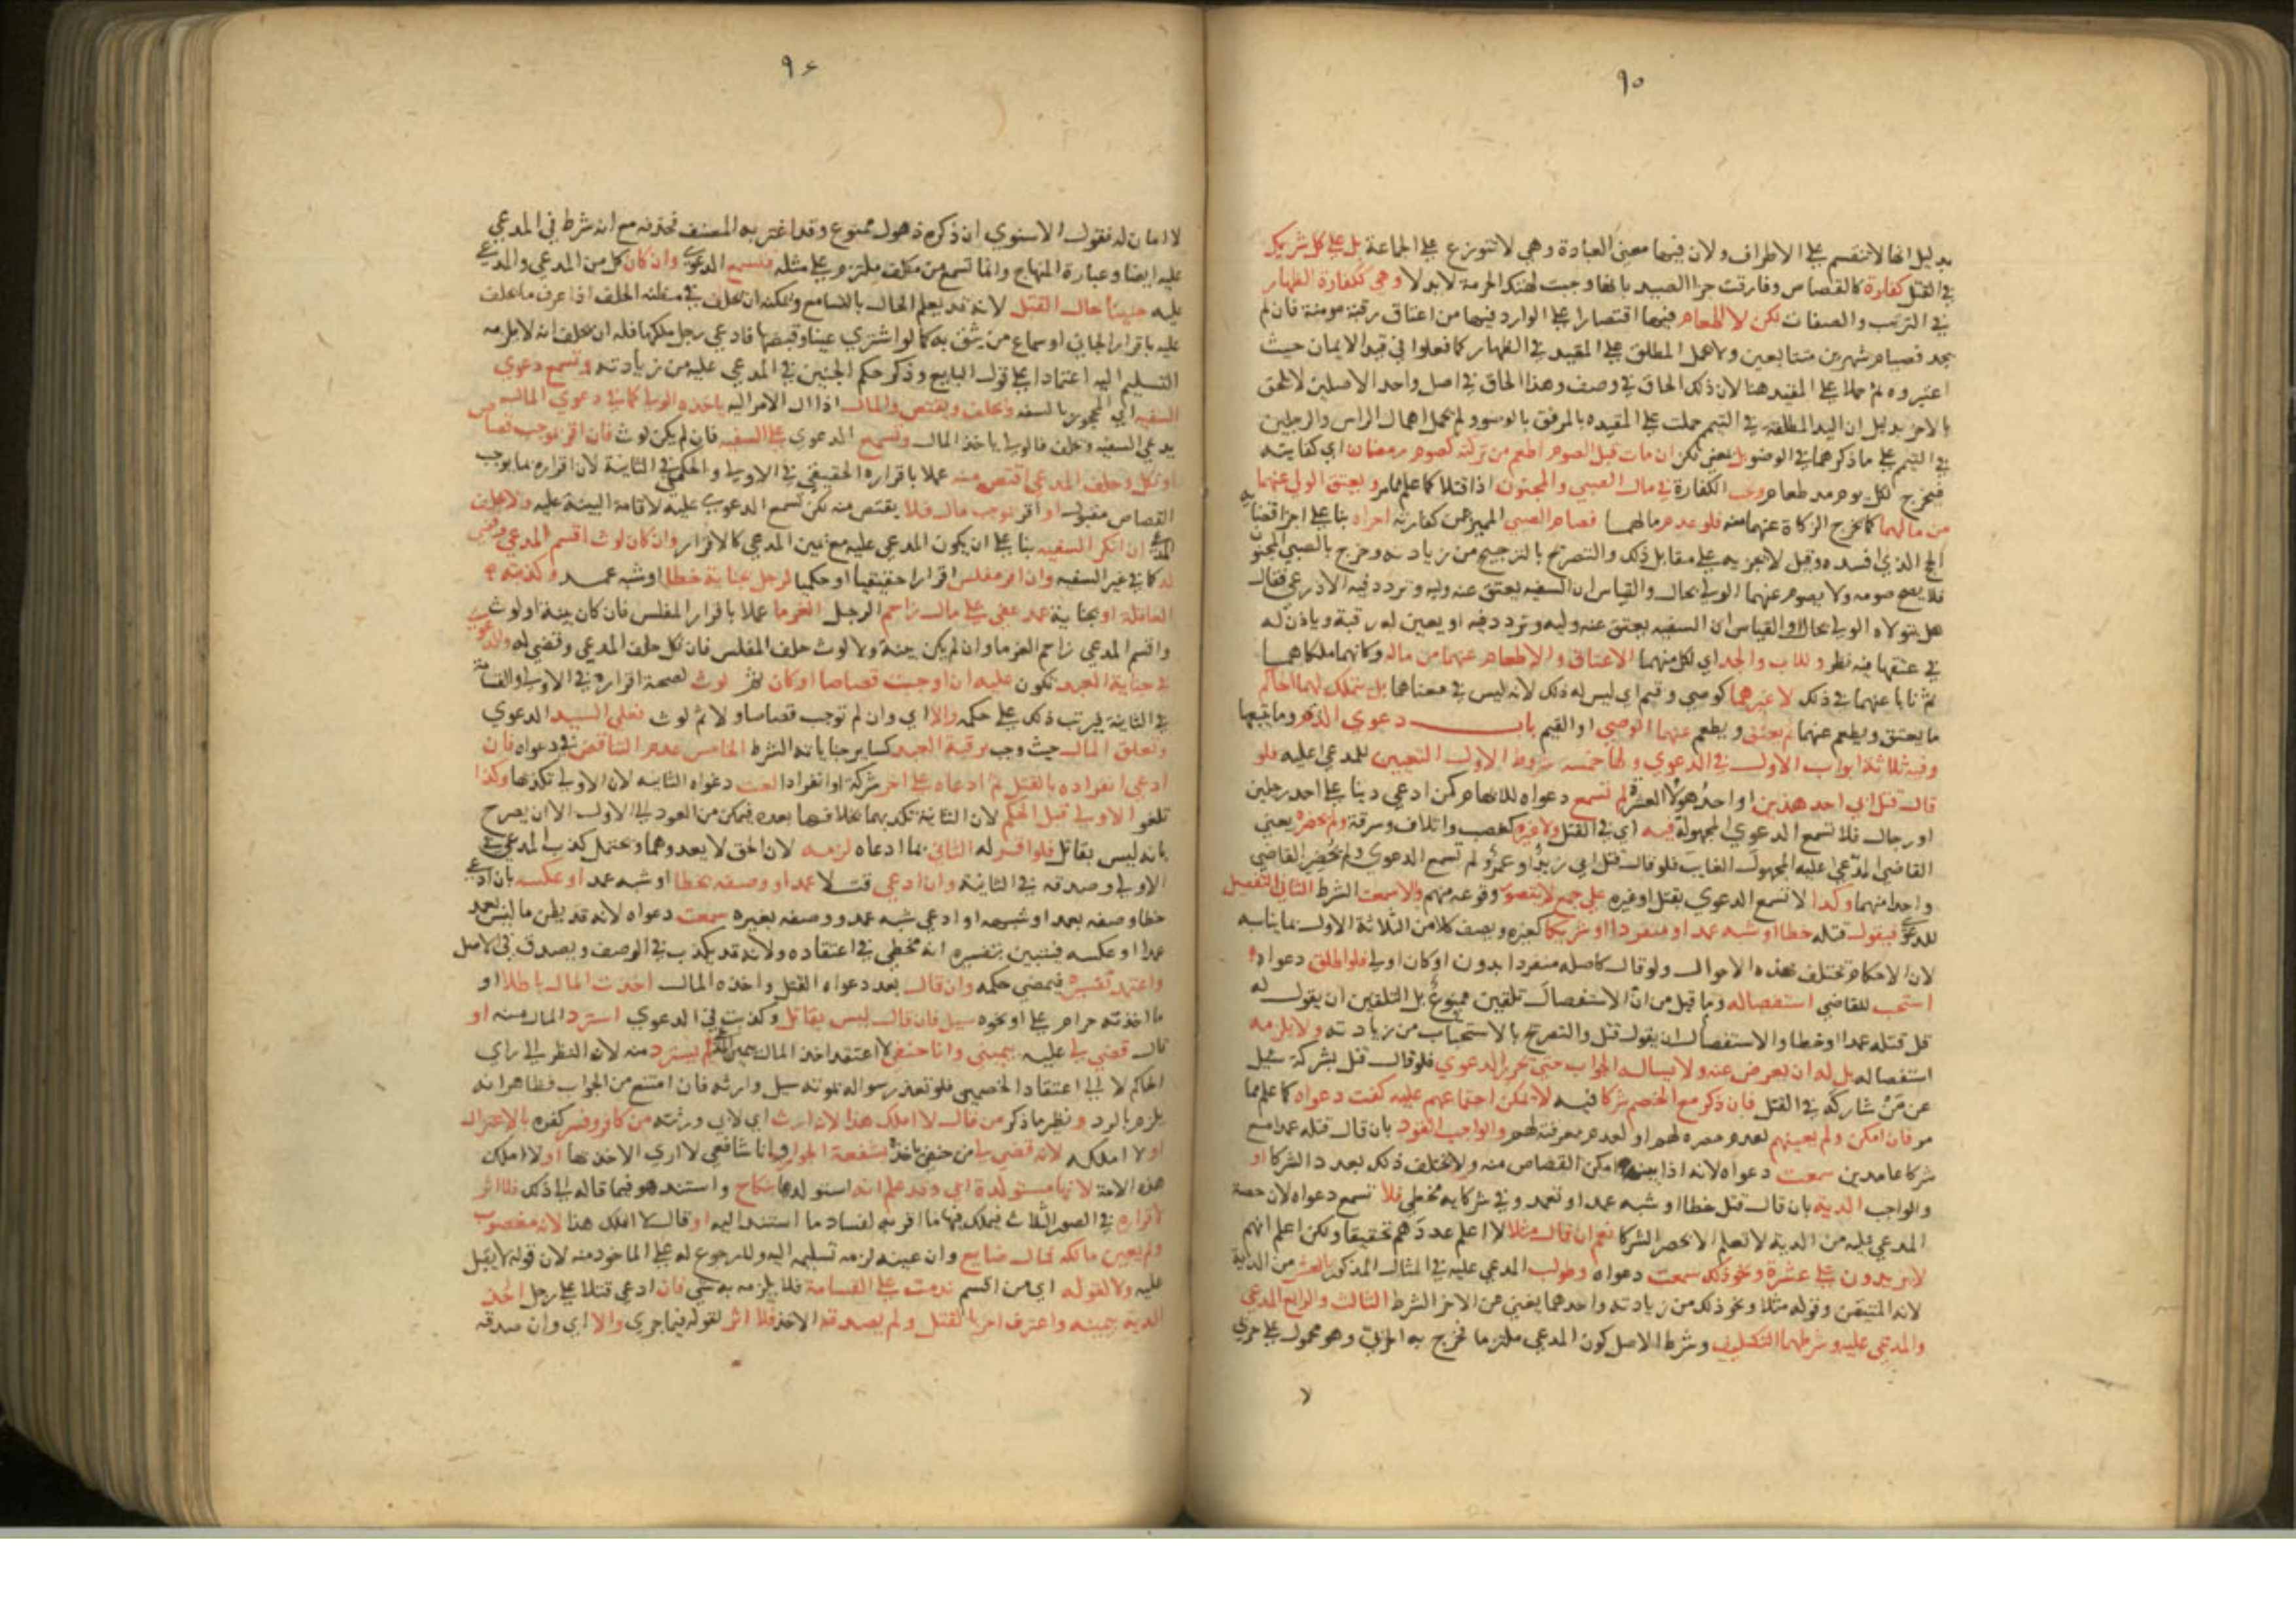 ٩٥
بدليل انها لا تنقسم على الاطراف ولان فيها معنى العبادة وهي لا تتوزع على الجماعة بل على كل شريك
في القتل كفارة كالقصاص وفارقت جزا الصيد بانها وجبت لهتك الحرمة لا بدلا وهي ككفارة الظهار
في الترتيب والصفات لكن لا اطعام فيها اقتصارا على الوارد فيها من اعتاق رقبة مومنة فان لم
يجد فصيام شهرين متتابعين ولا يحمل المطلق على المقيد في الظهار كما فعلوا في قيد الايمان حيث
اعتبروه ثم حملا على المقيد هنا لان ذلك الحاق في وصف وهذا الحاق في اصل واحد الاصلين لا يلحق
بالاخر بدليل ان اليد المطلقة في التيمم حملت على المقيدة بالمرفق بالوضوء ولم يحمل اهمال الراس والرجلين
في التيمم على ما ذكرهما في الوضو بل يعني لكن ان مات قبل الصوم اطعم من تركته كصوم رمضان اي كفايته
فيخرج لكل يوم مد طعام وتجب الكفارة في مال الصبي والمجنون اذا قتلا كما علم مما مر ويعتق الولي عنهما
من مالهما كما يخرج الزكاة عنهما منه فلو عدم مالهما فصام الصبي المميز عن كفارته اجزاه بنا على اجزا قضايه
الحج الذي افسده وقيل لا يجزيه على مقابل ذلك والتصريح بالترجيح من زيادته وخرج بالصبي المجنون
فلا يصح صومه ولا يصوم عنهما الولي بحال والقياس ان السفيه يعتق عنه وليه وتردد فيه الاذرعي فقال
هل يتولاه الولي بحال او القياس ان السفيه يعتق عنه وليه وتردد فيه او يعين له رقبة وياذن له
في عتقها فيه نظر وللاب والجد اي لكل منهما الاعتاق والاطعام عنهما من ماله وكانهما ملكاهما
ثم نابا عنهما في ذلك لا غيرهما كوصي وقيم اي ليس له ذلك لانه ليس في معناهما بل يتملك لهما الحاكم
ما يعتق ويطعم عنهما ثم يعتق ويطعم عنهما الوصي او القيم باب دعوى الدم وما يتبعها
وفيه ثلاثة ابواب الاول في الدعوي ولها خمسة شروط الاول التعيين للمدعي عليه فلو
قال قتل ابي احد هذين او احد هولا العشرة لم تسمع دعواه للابهام كمن ادعي دينا على احد رجلين
او رجال فلا تسمع الدعوي المجهولة فيه اي في القتل ولا غيره كغصب واتلاف وسرقة ولم يحضره يعني
القاضي المدعي عليه المجهول الغايب فلو قال قتل ابي زيد او عمرو لم تسمع الدعوي ولم يحضر القاضي
واحدا منهما وكذا لا تسمع الدعوي بقتل او غيره على جمع لا يتصور وقوعه منهم والا سمعت الشرط الثاني التفصيل
للدعوي فيقول قتله خطا او شبه عمد او منفردا او شريكا كغيره ويصف كلا من الثلاثة الاول بما يناسبه
لان الاحكام تختلف بهذه الاحوال ولو قال كاصله منفردا بدون او كان اولى فلو اطلق دعواه
استحب للقاضي استفصاله وما قيل من ان الاستفصال تلقين ممنوع بل التلقين ان يقول له
قل قتله عمدا او خطا والاستفصال ان يقول قتل والتصريح بالاستحباب من زيادته ولا يلزمه
استفصاله بل له ان يعرض عنه ولا يسال الجواب حتى تحرر الدعوي فلو قال قتل بشركة سيل
عن من شاركه في القتل فان ذكر مع الخصم شركا فيه لا يمكن اجتماعهم عليه كفت دعواه كما علم مما
مر فان امكن ولم يعينهم لعدم حصره لهم او لعدم معرفته لهم والواجب القود بان قال قتله عمدا مع
شركا عامدين سمعت دعواه لانه اذا بينه امكن القصاص منه ولا يختلف ذلك بعدد الشركا او
والواجب الدية بان قال قتل خطا او شبه عمد او تعمد وفي شركايه مخطي فلا تسمع دعواه لان حصة
المدعي عليه من الدية لا تعلم الا بحصر الشركا نعم ان قال مثلا لا اعلم عددهم تحقيقا ولكن اعلم انهم
لا يزيدون على عشرة ونحو ذلك سمعت دعواه وطولب المدعي عليه في المثال المذكور بالعشر من الدية
لانه المتيقن وقوله مثلا ونحو ذلك من زيادته واحدهما يغني عن الاخر الشرط الثالث والرابع المدعي
والمدعي عليه وشرطهما التكليف وشرط الاصل كون المدعي ملتزما تخرج به الحربي وهو محمول على حربي
لا
٩٤
لا امان له فقول الاسنوي ان ذكره ذهول ممنوع وقد اغتر به المصنف فحذفه مع انه شرط في المدعي
عليه ايضا وعبارة المنهاج وانما تسمع من مكلف ملتزم على مثله فتسمع الدعوي وان كان كل من المدعي والمدعي
عليه جنينا حال القتل لانه قد يعلم الحال بالتسامع ويمكنه ان يحلف في مظنة الحلف اذا عرف ما يحلف
عليه باقرار الجاني او سماع من يثق به كما لو اشتري عينا وقبضها فادعي رجل ملكها فله ان يحلف انه لا يلزمه
التسليم اليه اعتمادا على قول البايع وذكر حكم الجنين في المدعي عليه من زيادته وتسمع دعوي
السفيه اي المحجور بالسفه ويحلف ويقتص والمال اذا ال الامر اليه ياخذه الولي كما في دعوي المال
يدعي السفيه ويحلف فالولي ياخذ المال وتسمع الدعوي على السفيه فان لم يكن لوث فان اقر بموجب قصاص
او نكل وحلف المدعي اقتص منه عملا باقراره الحقيقي في الاولى والحكمي في الثانية لان اقراره بما يوجب
القصاص مقبول او اقر بموجب مال فلا يقتص منه لكن تسمع الدعوي عليه لاقامة البينة عليه ولا يحلف
المدعي ان انكر السفيه بنا على ان يكون المدعي عليه مع يمين المدعي كالاقرار وان كان لوث اقسم المدعي وقضي
له كما في غير السفيه وان اقر مفلس اقرارا حقيقيا او حكميا لرجل بجناية خطا او شبه عمد وكذبته
العاقلة او بجناية عمد عفي على مال زاحم الرجل الغرما عملا باقرار المفلس فان كان بينة او لوث
واقسم المدعي زاحم الغرما وان لم يكن بينة ولا لوث حلف المفلس فان نكل حلف المدعي وقضي له والدعوي
في جناية العبد تكون عليه ان اوجبت قصاصا او كان ثم لوث لصحة اقراره في الاولى والقسامة
في الثانية فيرتب ذلك على حكمه والا اي وان لم توجب قصاصا ولا ثم لوث فعلى السيد الدعوي
وتعلق المال حيث وجب برقبة العبد كسايرجناياته الشرط الخامس عدم التناقض في دعواه فان
ادعي انفراده بالقتل ثم ادعاه على اخر شركة او انفرادا لغت دعواه الثانية لان الاولى تكذبها وكذا
تلغو الاولى قبل الحكم لان الثانية تكذبها بخلافها بعده فيمكن من العود الى الاول الا ان يصرح
بانه ليس بقاتل فلو اقر له الثاني بما ادعاه لزمه لان الحق لا يعدوهما ويحتمل كذب المدعي في
الاولى وصدقه في الثانية وان ادعي قتلا عمدا ووصفه بخطا او شبه عمد او عكسه بان ادعي
خطا وصفه بعمد او شبهه او ادعي شبه عمد ووصفه بغيره سمعت دعواه لانه قد يظن ما ليس بعمد
عمدا او عكسه فيتبين بتفسيره انه مخطي في اعتقاده ولانه قد يكذب في الوصف ويصدق في الاصل
واعتمد تفسيره فيمضي حكمه وان قال بعد دعواه القتل واخذه المال اخذت المال باطلا او
ما اخذته حرام على او نحوه سيل فان قال ليس بقاتل وكذبت في الدعوي استرد المال منه او
قال قضي لي عليه بيميني وانا حنفي لا اعتقد اخذ المال بيمين المدعي لم يسترد منه لان النظر الى راي
الحاكم لا الى اعتقاد الخصمين فلو تعذر سواله لموته سيل وارثه فان امتنع من الجواب فظاهر انه
يلزم بالرد ونظير ما ذكر من قال لا املك هذا لانه ارث اي لابي ورثته من كافر وفسر كفره بالاعتزال
او لا املكه لانه قضي لي من حنفي باخذه بشفعة الجوار وانا شافعي لا اري الاخذ بها او لا املك
هذه الامة لانها مستولدة ابي وقد علم انه استولدها بنكاح واستند هو فيما قاله الى ذلك فلا اثر
لاقراره في الصور الثلاث فيملك فيها ما اقر به لفساد ما استند اليه او قال لا املك هذا لانه مغصوب
ولم يعين مالكه فمال ضايع وان عينه لزمه تسليمه اليه وللرجوع له على الماخوذ منه لان قوله لا يقبل
عليه ولا لقوله اي من اقسم ندمت على القسامة فلا يلزمه به شي فان ادعي قتلا على رجل اخذ
الدية بيمينه واعترف اخر بالقتل ولم يصدقه الاخذ فلا اثر لقوله فيما جري والا اي وان صدقه